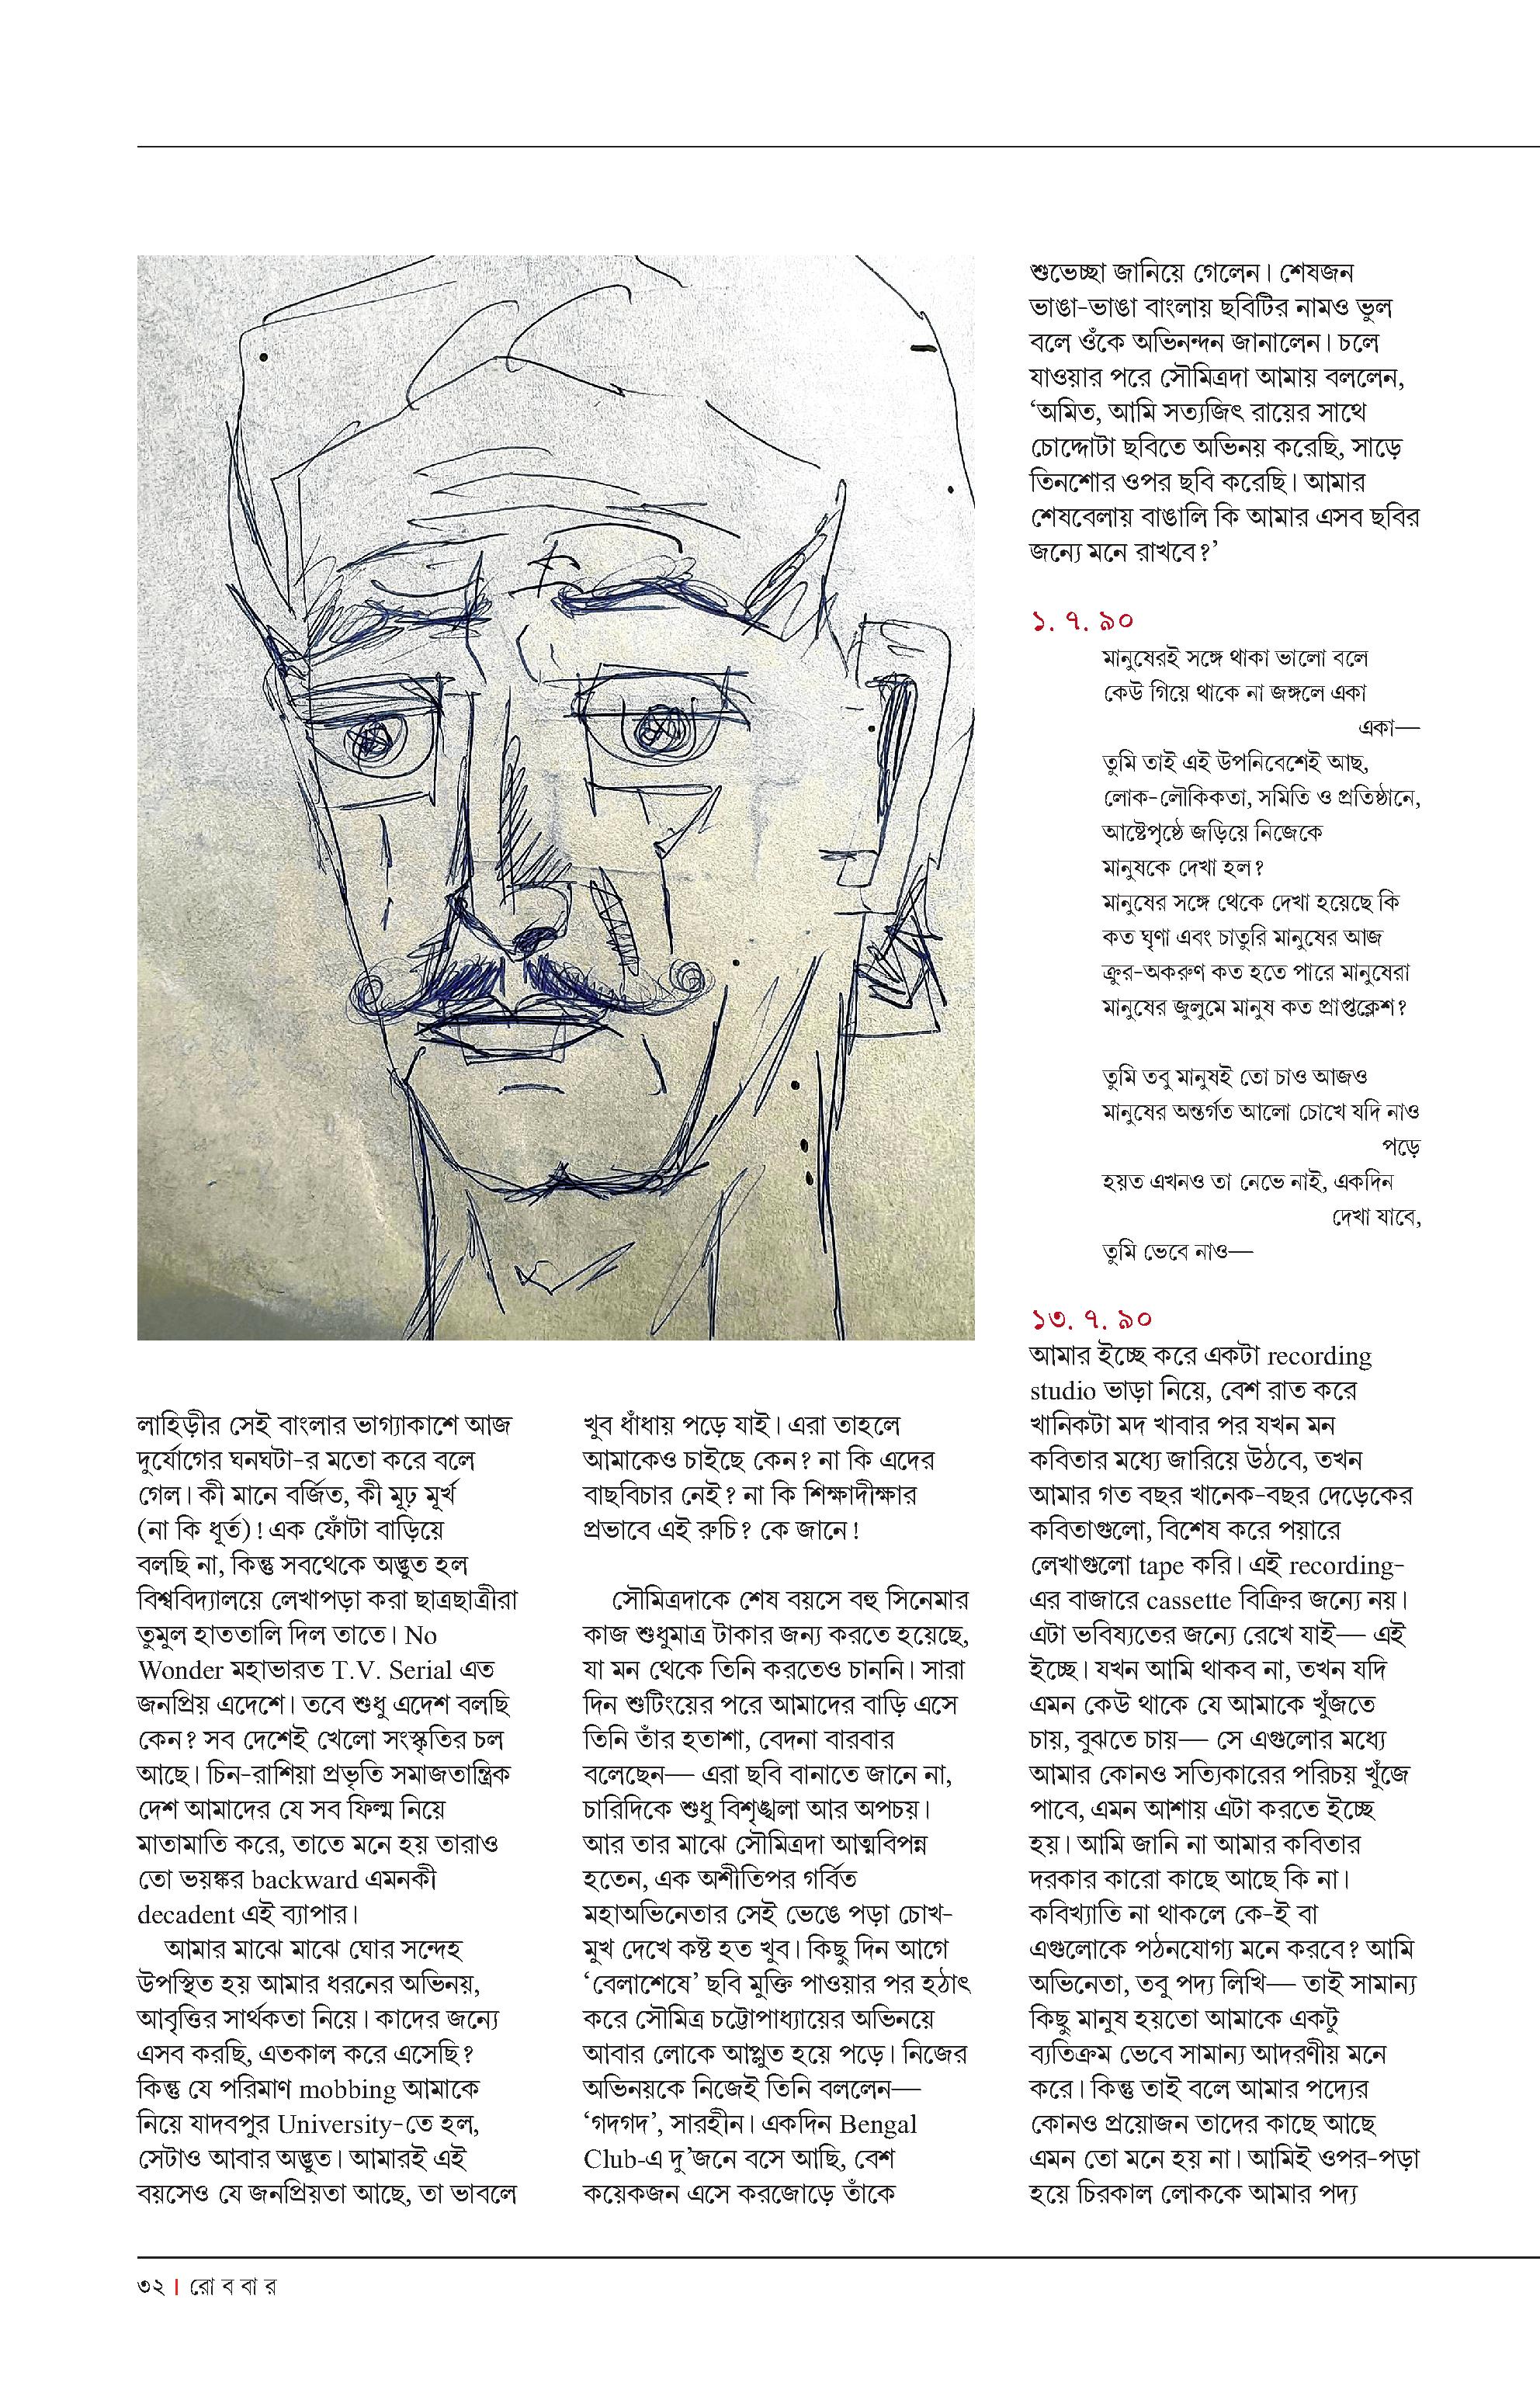 লাহিড়ীর সেই বাংলার ভাগ্যাকাশে আজ
দুর্যোগের ঘনঘটা-র মতো করে বলে
গেল। কী মানে বর্জিত, কী মূঢ় মূর্খ
(না কি ধূর্ত)! এক ফোঁটা বাড়িয়ে
বলছি না, কিন্তু সবথেকে অদ্ভুত হল
বিশ্ববিদ্যালয়ে লেখাপড়া করা ছাত্রছাত্রীরা
তুমুল হাততালি দিল তাতে। No
Wonder মহাভারত T.V. Serial এত
জনপ্রিয় এদেশে। তবে শুধু এদেশ বলছি
কেন? সব দেশেই খেলো সংস্কৃতির চল
আছে। চিন-রাশিয়া প্রভৃতি সমাজতান্ত্রিক
দেশ আমাদের যে সব ফিল্ম নিয়ে
মাতামাতি করে, তাতে মনে হয় তারাও
তো ভয়ঙ্কর backward এমনকী
decadent এই ব্যাপার।
আমার মাঝে মাঝে ঘোর সন্দেহ
উপস্থিত হয় আমার ধরনের অভিনয়,
আবৃত্তির সার্থকতা নিয়ে। কাদের জন্যে
এসব করছি, এতকাল করে এসেছি?
কিন্তু যে পরিমাণ mobbing আমাকে
নিয়ে যাদবপুর University-তে হল,
সেটাও আবার অদ্ভুত। আমারই এই
বয়সেও যে জনপ্রিয়তা আছে, তা ভাবলে
খুব ধাঁধায় পড়ে যাই। এরা তাহলে
আমাকেও চাইছে কেন? না কি এদের
বাছবিচার নেই? না কি শিক্ষাদীক্ষার
প্রভাবে এই রুচি? কে জানে!
সৌমিত্রদাকে শেষ বয়সে বহু সিনেমার
কাজ শুধুমাত্র টাকার জন্য করতে হয়েছে,
যা মন থেকে তিনি করতেও চাননি। সারা
দিন শুটিংয়ের পরে আমাদের বাড়ি এসে
তিনি তাঁর হতাশা, বেদনা বারবার
বলেছেন— এরা ছবি বানাতে জানে না,
চারিদিকে শুধু বিশৃঙ্খলা আর অপচয়।
আর তার মাঝে সৌমিত্রদা আত্মবিপন্ন
হতেন, এক অশীতিপর গর্বিত
মহাঅভিনেতার সেই ভেঙে পড়া চোখ-
মুখ দেখে কষ্ট হত খুব। কিছু দিন আগে
‘বেলাশেষে’ ছবি মুক্তি পাওয়ার পর হঠাৎ
করে সৌমিত্র চট্টোপাধ্যায়ের অভিনয়ে
আবার লোকে আপ্লুত হয়ে পড়ে। নিজের
অভিনয়কে নিজেই তিনি বললেন—
‘গদগদ’, সারহীন। একদিন Bengal
Club-এ দু’জনে বসে আছি, বেশ
কয়েকজন এসে করজোড়ে তাঁকে
শুভেচ্ছা জানিয়ে গেলেন। শেষজন
ভাঙা-ভাঙা বাংলায় ছবিটির নামও ভুল
বলে ওঁকে অভিনন্দন জানালেন। চলে
যাওয়ার পরে সৌমিত্রদা আমায় বললেন,
‘অমিত, আমি সত্যজিৎ রায়ের সাথে
চোদ্দোটা ছবিতে অভিনয় করেছি, সাড়ে
তিনশোর ওপর ছবি করেছি। আমার
শেষবেলায় বাঙালি কি আমার এসব ছবির
জন্যে মনে রাখবে?’
১. ৭. ৯০
মানুষেরই সঙ্গে থাকা ভালো বলে
কেউ গিয়ে থাকে না জঙ্গলে একা
একা—
তুমি তাই এই উপনিবেশেই আছ,
লোক-লৌকিকতা, সমিতি ও প্রতিষ্ঠানে,
আষ্টেপৃষ্ঠে জড়িয়ে নিজেকে
মানুষকে দেখা হল?
মানুষের সঙ্গে থেকে দেখা হয়েছে কি
কত ঘৃণা এবং চাতুরি মানুষের আজ
ক্রুর-অকরুণ কত হতে পারে মানুষেরা
মানুষের জুলুমে মানুষ কত প্রাপ্তক্লেশ?
তুমি তবু মানুষই তো চাও আজও
মানুষের অন্তর্গত আলো চোখে যদি নাও
পড়ে
হয়ত এখনও তা নেভে নাই, একদিন
দেখা যাবে,
তুমি ভেবে নাও—
১৩. ৭. ৯০
আমার ইচ্ছে করে একটা recording
studio ভাড়া নিয়ে, বেশ রাত করে
খানিকটা মদ খাবার পর যখন মন
কবিতার মধ্যে জারিয়ে উঠবে, তখন
আমার গত বছর খানেক-বছর দেড়েকের
কবিতাগুলো, বিশেষ করে পয়ারে
লেখাগুলো tape করি। এই recording-
এর বাজারে cassette বিক্রির জন্যে নয়।
এটা ভবিষ্যতের জন্যে রেখে যাই— এই
ইচ্ছে। যখন আমি থাকব না, তখন যদি
এমন কেউ থাকে যে আমাকে খুঁজতে
চায়, বুঝতে চায়— সে এগুলোর মধ্যে
আমার কোনও সত্যিকারের পরিচয় খুঁজে
পাবে, এমন আশায় এটা করতে ইচ্ছে
হয়। আমি জানি না আমার কবিতার
দরকার কারো কাছে আছে কি না।
কবিখ্যাতি না থাকলে কে-ই বা
এগুলোকে পঠনযোগ্য মনে করবে? আমি
অভিনেতা, তবু পদ্য লিখি— তাই সামান্য
কিছু মানুষ হয়তো আমাকে একটু
ব্যতিক্রম ভেবে সামান্য আদরণীয় মনে
করে। কিন্তু তাই বলে আমার পদ্যের
কোনও প্রয়োজন তাদের কাছে আছে
এমন তো মনে হয় না। আমিই ওপর-পড়া
হয়ে চিরকাল লোককে আমার পদ্য
৩২ | রো ব বা র